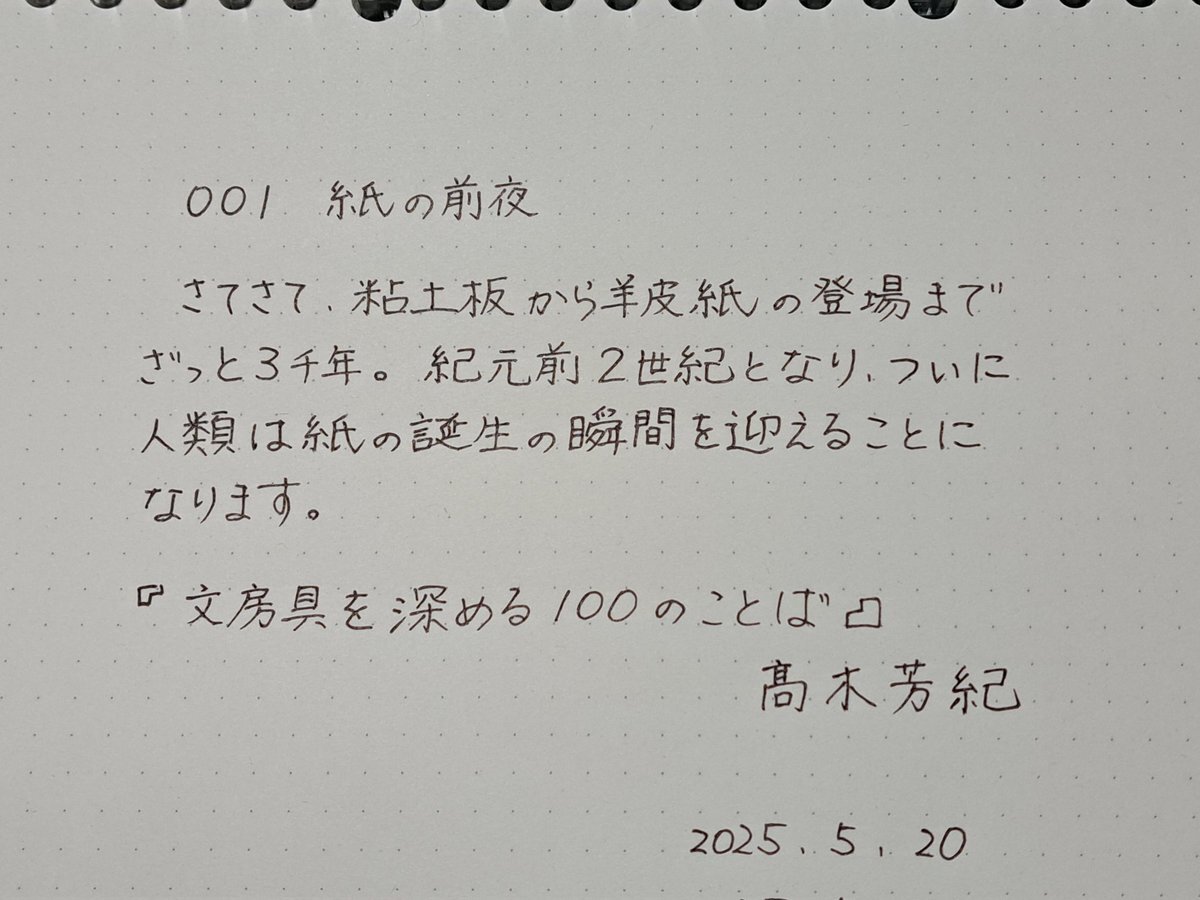 001 紙の前夜
さてさて、粘土板から羊皮紙の登場まで
ざっと3千年。紀元前2世紀となり、ついに
人類は紙の誕生の瞬間を迎えることに
なります。
『文房具を深める100のことば』
髙木芳紀
2025.5.20